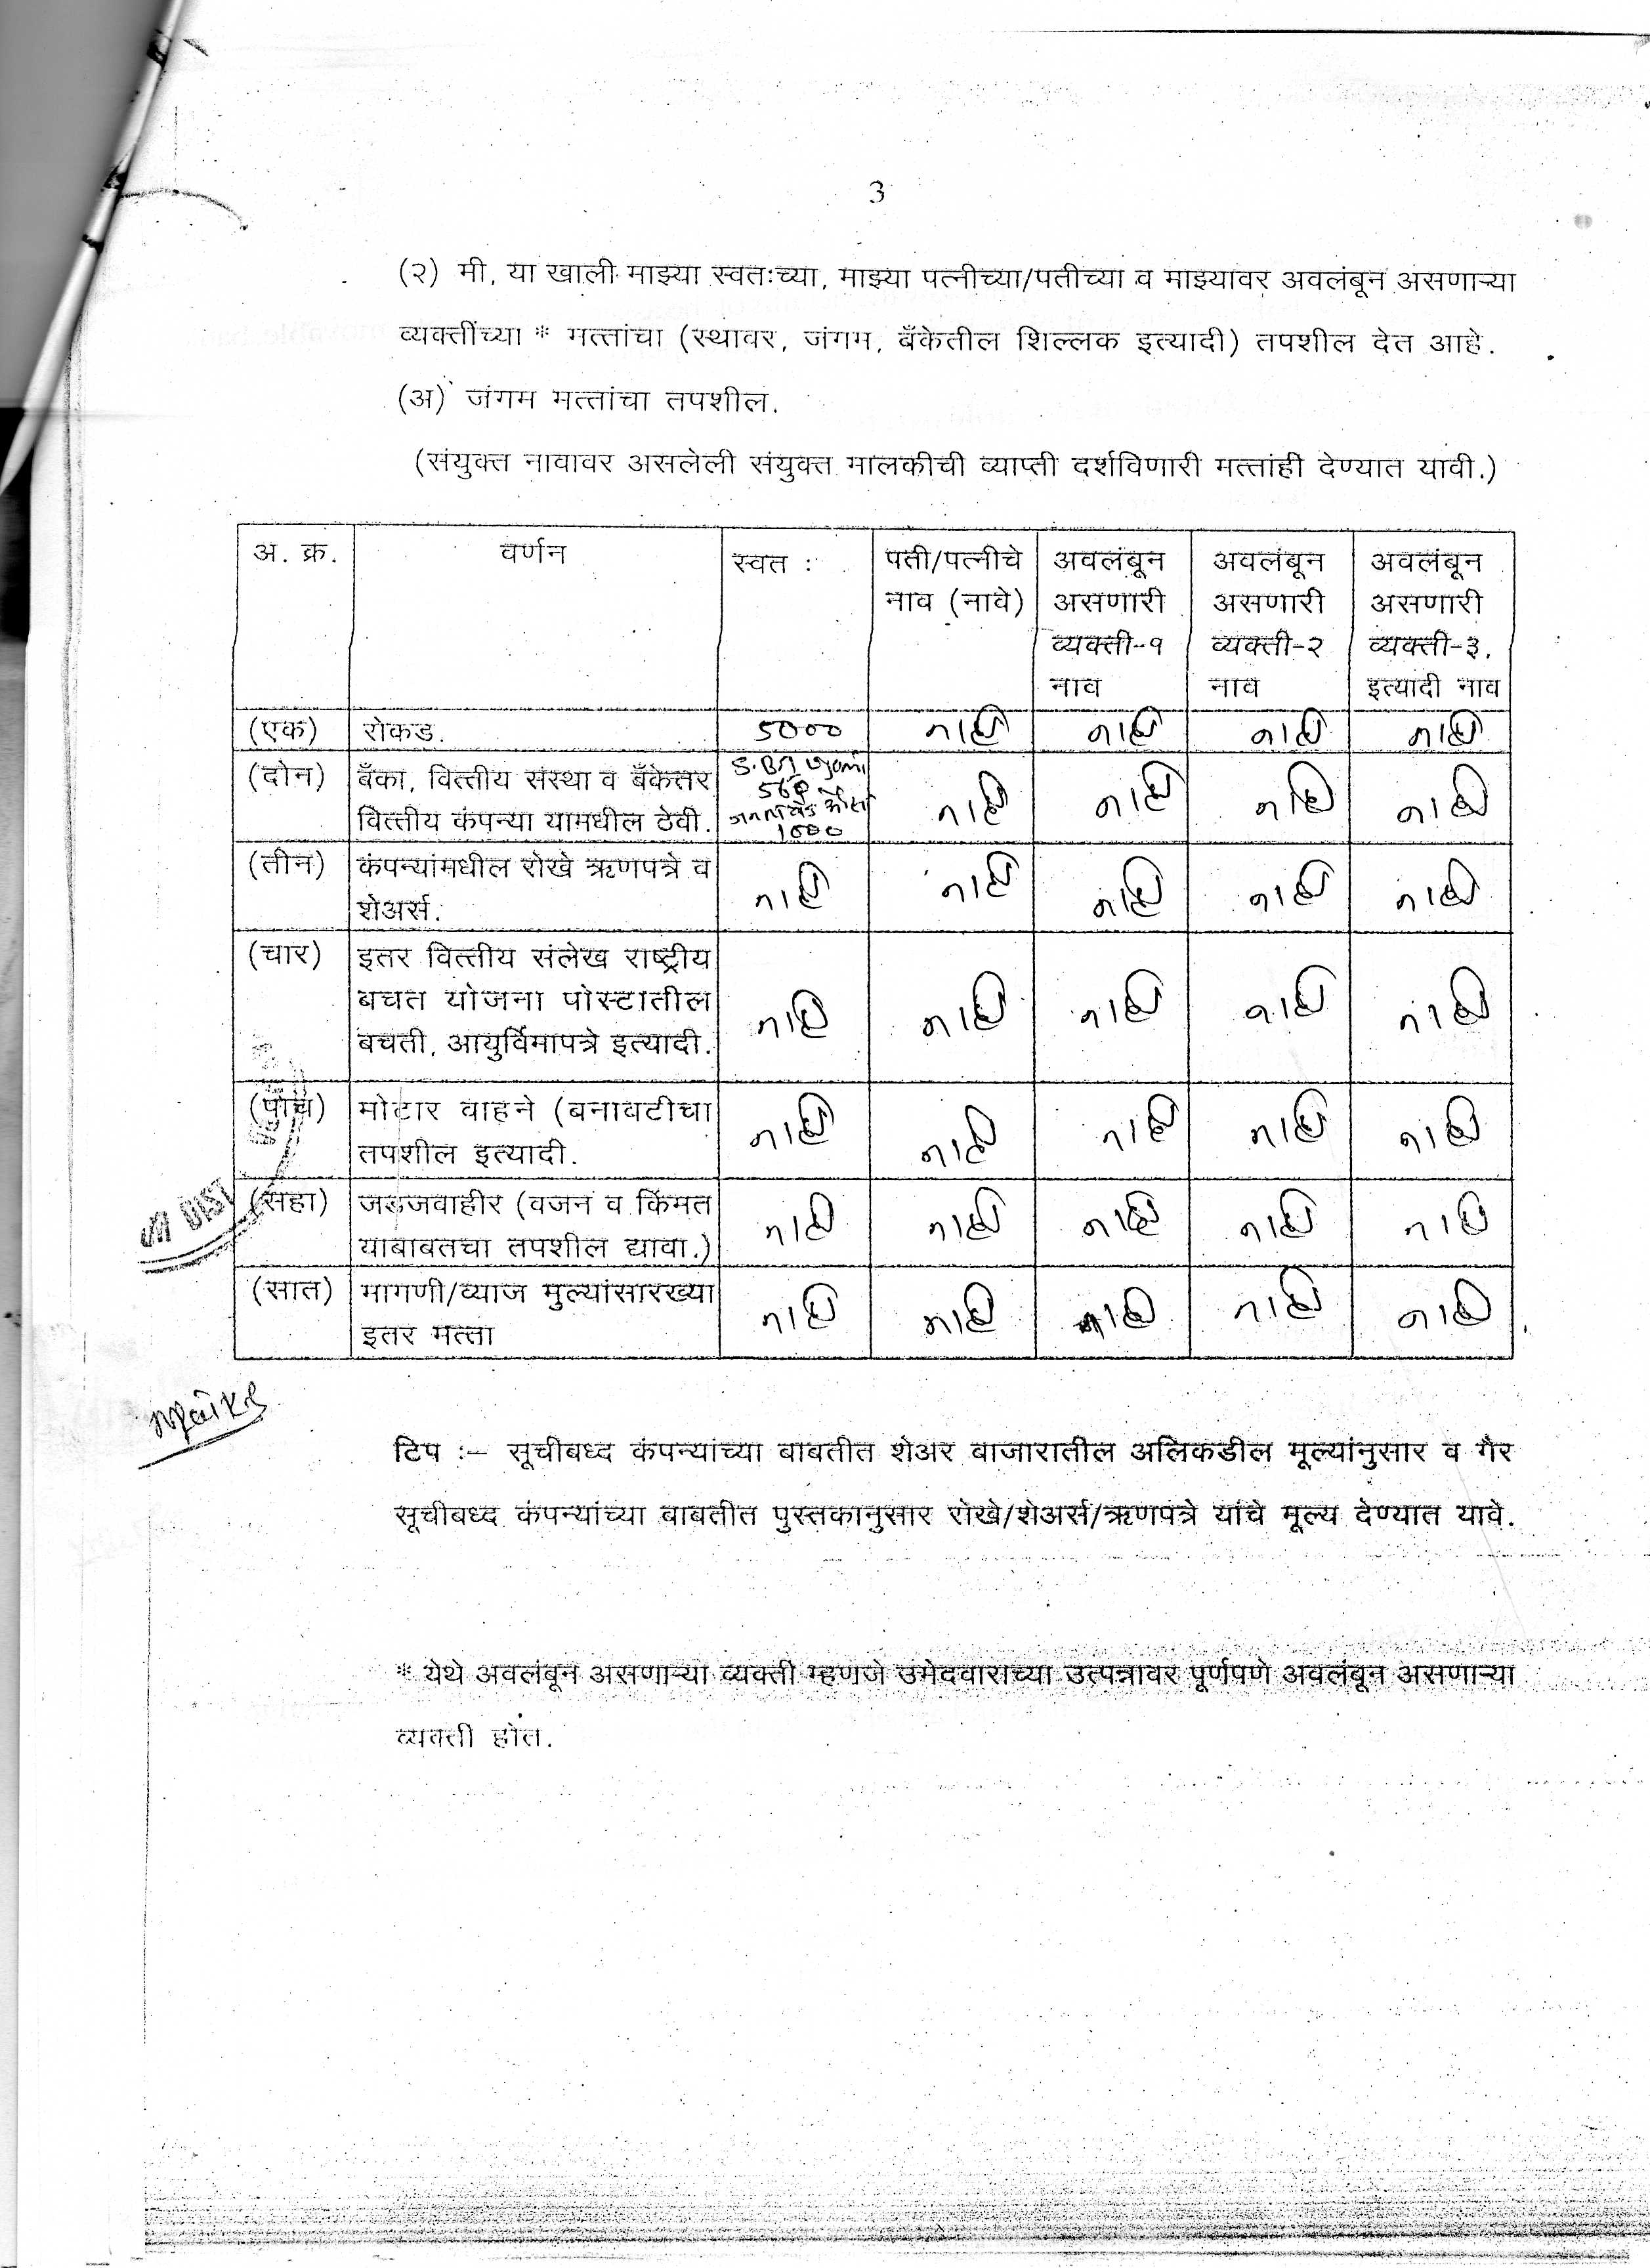 3
(२) मी, या खाली माझ्या स्वतःच्या, माझ्या पत्नीच्या/पतीच्या व माझ्यावर अवलंबून असणाऱ्या
व्यक्तींच्या * मत्तांचा (स्थावर, जंगम, बँकेतील शिल्लक इत्यादी) तपशील देत आहे.
(अ) जंगम मत्तांचा तपशील.
(संयुक्त नावावर असलेली संयुक्त मालकीची व्याप्ती दर्शविणारी मत्तांही देण्यात यावी.)
अ. क्र. वर्णन स्वत : पती/पत्नीचे अवलंबून अवलंबून अवलंबून
नाव (नावे) असणारी असणारी असणारी
व्यक्ती-१ व्यक्ती-२ व्यक्ती-३.
नाव नाव इत्यादी नाव
(एक) रोकड. 5000 नाही नाही नाही नाही
(दोन) बँका, वित्तीय संस्था व बँकेतर S.B.I
वित्तीय कंपन्या यामधील ठेवी. 1000 नाही नाही नाही नाही
(तीन) कंपन्यांमधील रोखे ऋणपत्रे व
शेअर्स. नाही नाही नाही नाही नाही
(चार) इतर वित्तीय संलेख राष्ट्रीय
बचत योजना पोस्टातील
बचती, आयुर्विमापत्रे इत्यादी. नाही नाही नाही नाही नाही
(पाच) मोटार वाहने (बनावटीचा
तपशील इत्यादी. नाही नाही नाही नाही नाही
(सहा) जडजवाहीर (वजन व किंमत
याबाबतचा तपशील द्यावा.) नाही नाही नाही नाही नाही
(सात) मागणी/व्याज मुल्यांसारख्या
इतर मत्ता नाही नाही नाही नाही नाही
टिप :– सूचीबध्द कंपन्यांच्या बाबतीत शेअर बाजारातील अलिकडील मूल्यांनुसार व गैर
सूचीबध्द कंपन्यांच्या बाबतीत पुस्तकानुसार रोखे/शेअर्स/ऋणपत्रे यांचे मूल्य देण्यात यावे.
* येथे अवलंबून असणाऱ्या व्यक्ती म्हणजे उमेदवाराच्या उत्पन्नावर पूर्णपणे अवलंबून असणाऱ्या
व्यक्ती होत.